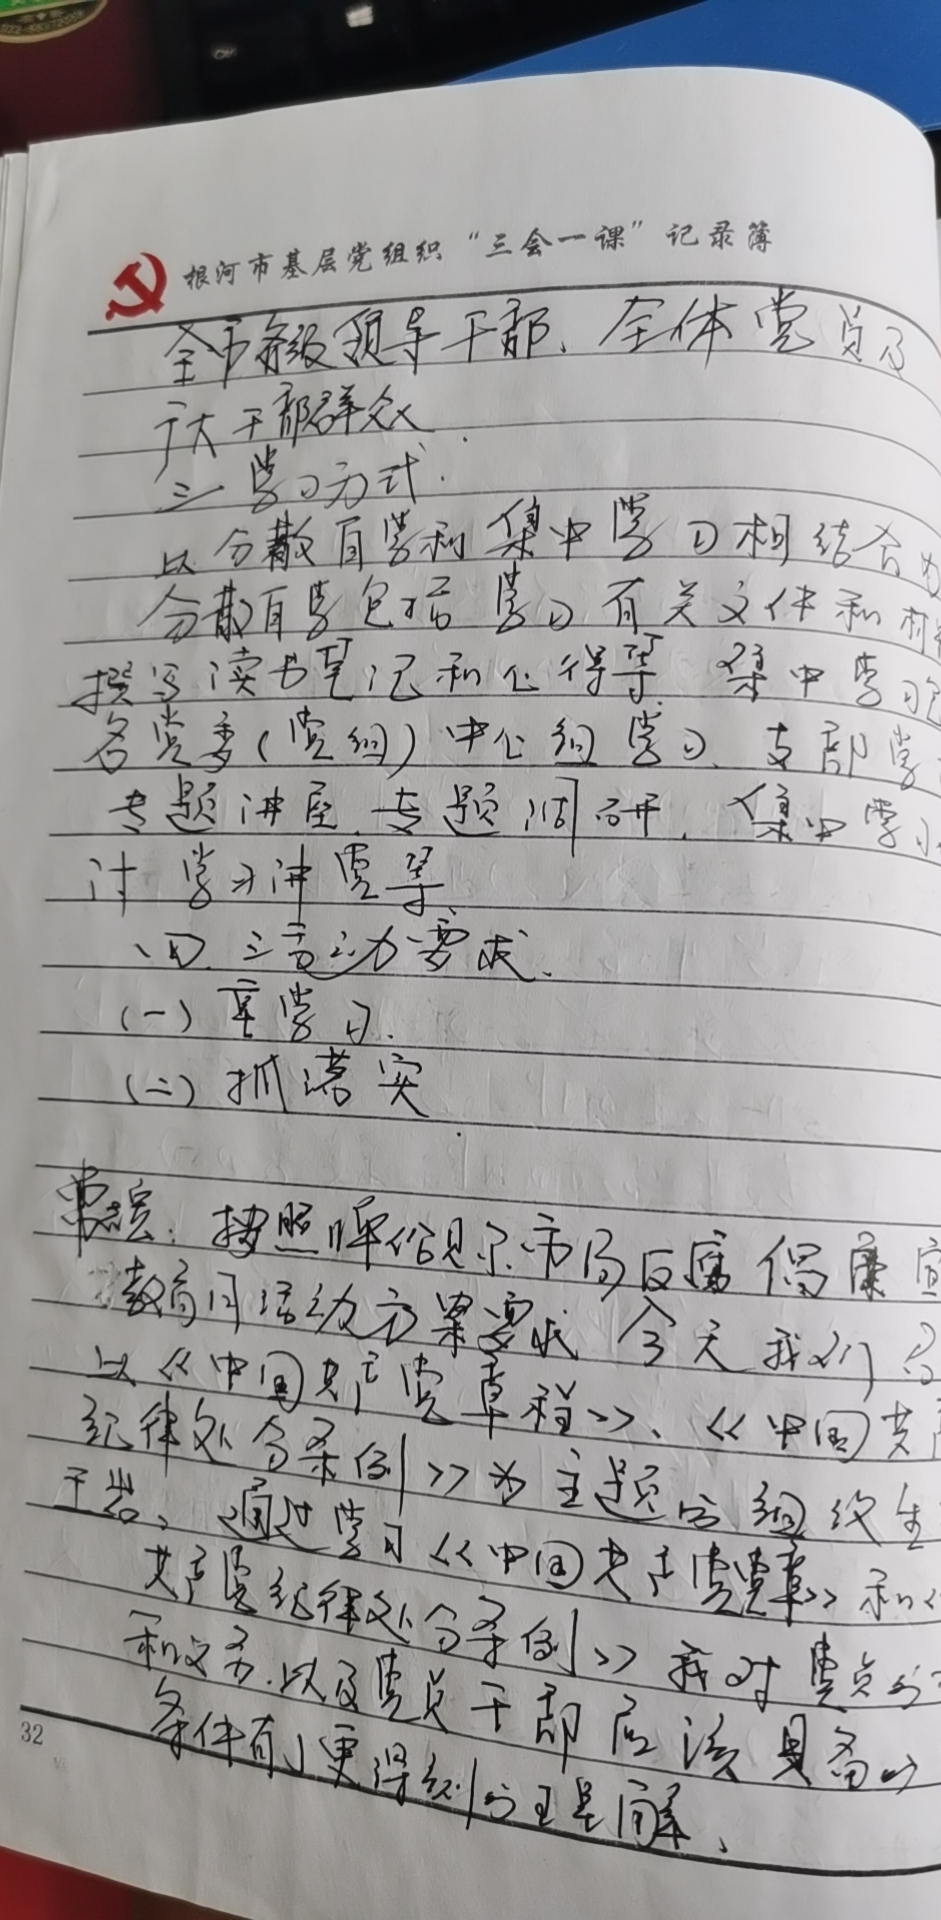 根河市基层党组织“三会一课”记录簿
全市各级领导干部、全体党员及
广大干部群众
三、学习方式.
以分散自学和集中学习相结合
分散自学包括学习有关文件和材
撰写读书笔记和心得等 集中学习
各党委(党组)中心组学习、支部学
专题讲座、专题调研、集中学习
讨 学习讲党等
四、活动要求、
(一)重学习.
(二)抓落实
按照呼伦贝尔市局反腐倡廉宣
教育月活动方案要求 今天我们
以《中国共产党章程》、《中国共产
纪律处分条例》为主题的组织生
于岩、通过学习《中国共产党党章》和《
共产党纪律处分条例》我对党员的
和义务.以及党员干部应该具备的
条件有了更深刻的 理解、
32